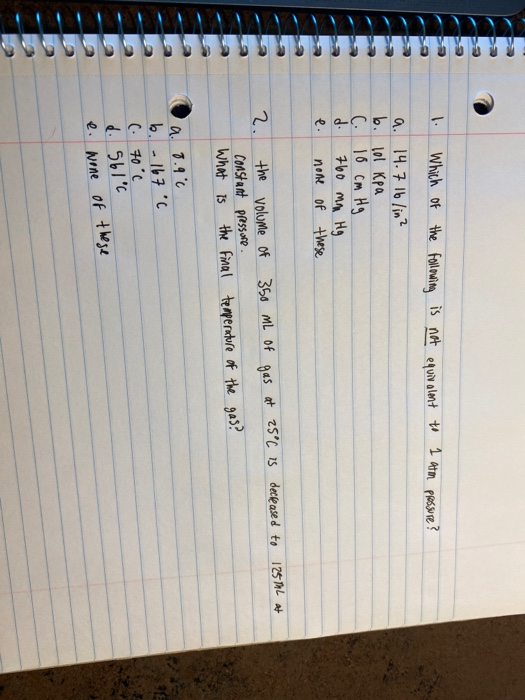 1. Which of the following is not equivalent to 1 atm pressure?
a. 14.7 lb/in²
b. 101 KPa
C. 18 cm Hg
d. 760 mm Hg
e. none of these
2. the volume of 350 mL of gas at 25°C is decreased to 125mL at
constant pressure.
What is the final temperature of the gas?
a. 8.9°C
b. -167 °C
C. 70°C
d. 561°C
e. None of these